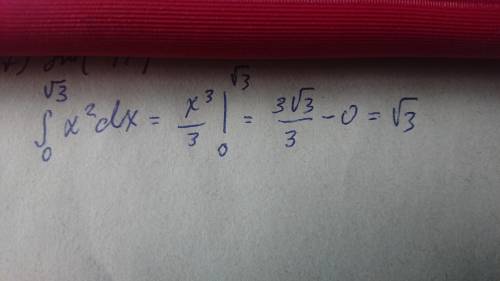 ∫₀^√3 x² dx = x³/3 |₀^√3 = 3√3/3 - 0 = √3